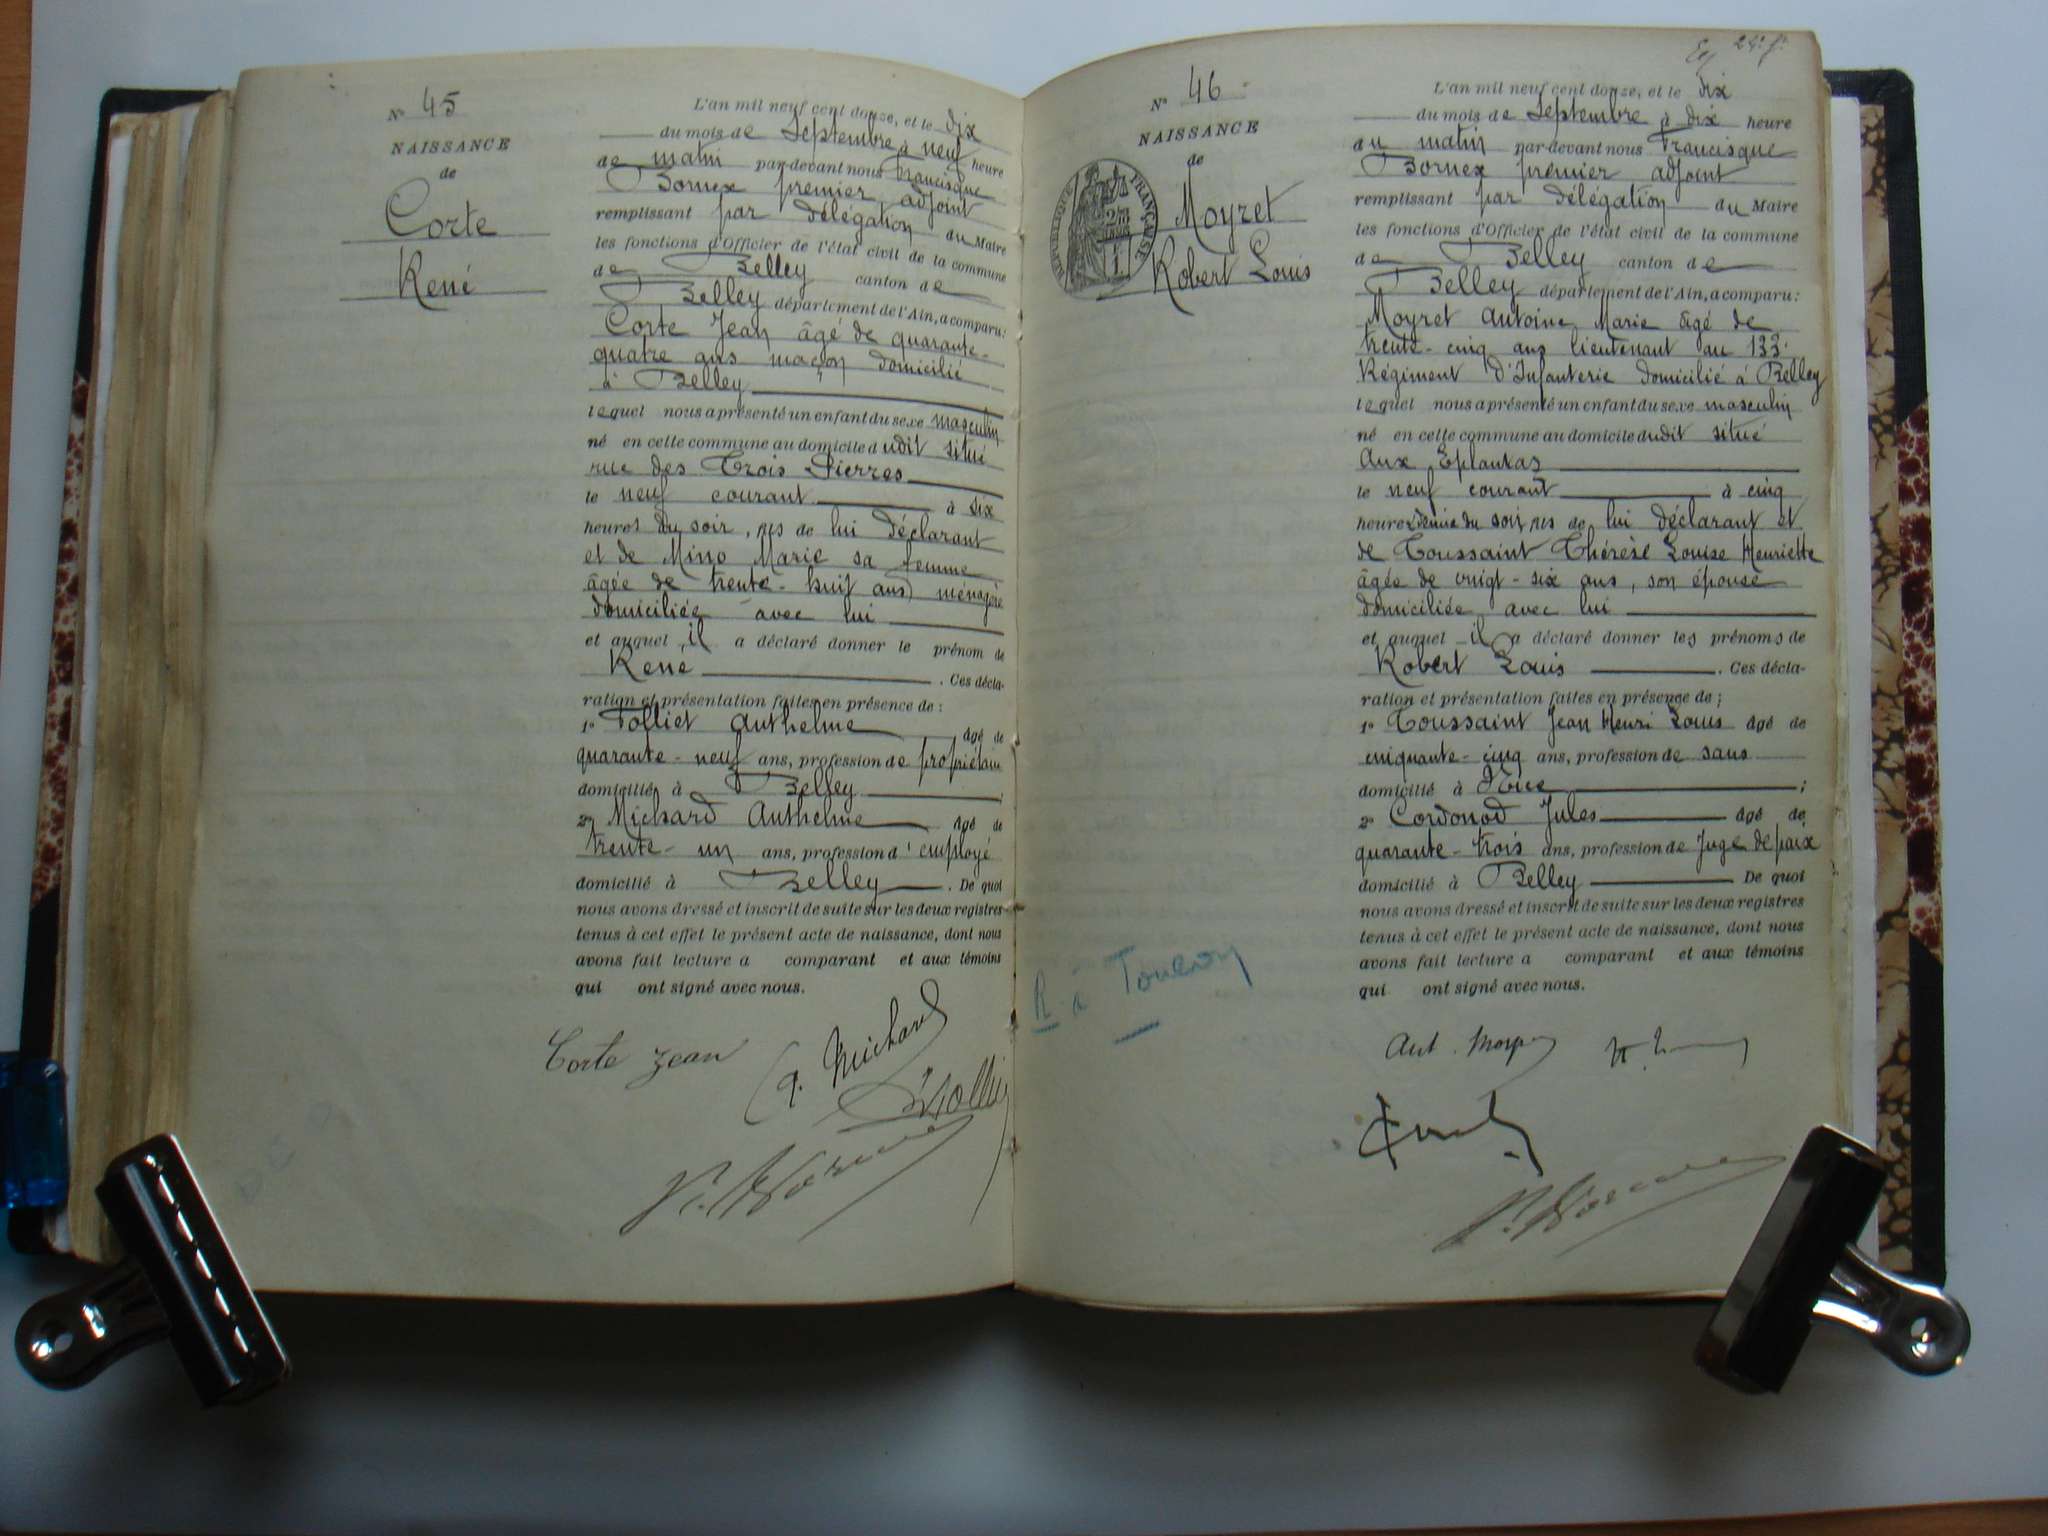 N° 45
NAISSANCE
de
Corte
René
L'an mil neuf cent douze, et le dix
du mois de Septembre à neuf heure
de matin par-devant nous Francisque
Bornex premier adjoint
remplissant par délégation du Maire
les fonctions d'Officier de l'état civil de la commune
de Belley canton de
Belley département de l'Ain, a comparu:
Corte Jean âgé de quarante-
quatre ans maçon domicilié
à Belley
lequel nous a présenté un enfant du sexe masculin
né en cette commune au domicile dudit situé
rue des Trois Pierres
le neuf courant à six
heures du soir, nes de lui déclarant
et de Mino Marie sa femme
âgée de trente-huit ans ménagère
domiciliée avec lui
et auquel il a déclaré donner le prénom de
René . Ces décla-
ration et présentation faites en présence de :
1° Folliet Anthelme âgé de
quarante-neuf ans, profession de propriétaire
domicilié à Belley ;
2° Michard Anthelme âgé de
trente-un ans, profession d'employé
domicilié à Belley . De quoi
nous avons dressé et inscrit de suite sur les deux registres
tenus à cet effet le présent acte de naissance, dont nous
avons fait lecture a comparant et aux témoins
qui ont signé avec nous.
Corte Jean
A. Michard
F. Bornex
24e f.
N° 46
NAISSANCE
de
RÉPUBLIQUE FRANÇAISE
Moyret
Robert Louis
L'an mil neuf cent douze, et le dix
du mois de Septembre à dix heure
du matin par-devant nous Francisque
Bornex premier adjoint
remplissant par délégation du Maire
les fonctions d'Officier de l'état civil de la commune
de Belley canton de
Belley département de l'Ain, a comparu:
Moyret Antoine Marie âgé de
trente-cinq ans lieutenant au 133e
Régiment d'Infanterie domicilié à Belley
lequel nous a présenté un enfant du sexe masculin
né en cette commune au domicile dudit situé
Aux Eplantas
le neuf courant à cinq
heures demie du soir nes de lui déclarant et
de Toussaint Thérèse Louise Henriette
âgée de vingt-six ans, son épouse
domiciliée avec lui
et auquel il a déclaré donner les prénoms de
Robert Louis . Ces décla-
ration et présentation faites en présence de ;
1° Toussaint Jean Henri Louis âgé de
cinquante-cinq ans, profession de sans
domicilié à Nice ;
2° Cordonod Jules âgé de
quarante-trois ans, profession de Juge de paix
domicilié à Belley De quoi
nous avons dressé et inscrit de suite sur les deux registres
tenus à cet effet le présent acte de naissance, dont nous
avons fait lecture a comparant et aux témoins
qui ont signé avec nous.
R à Toulon
Ant. Moyret
F. Bornex